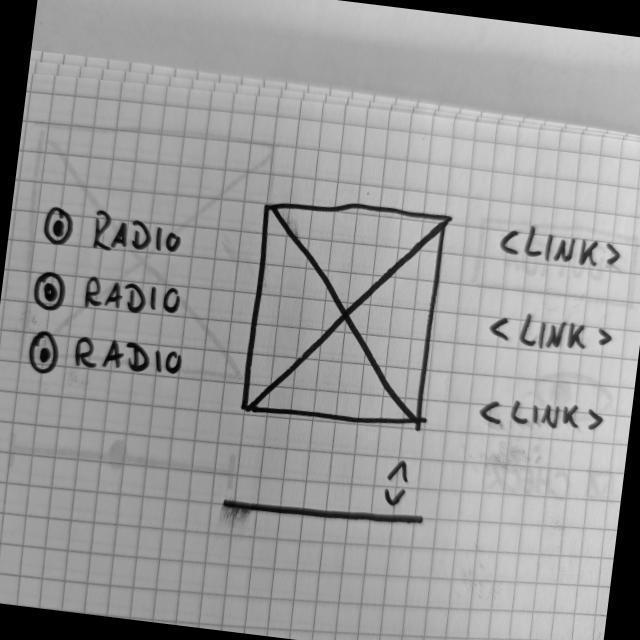 RADIO
RADIO
RADIO
<LINK>
<LINK>
<LINK>